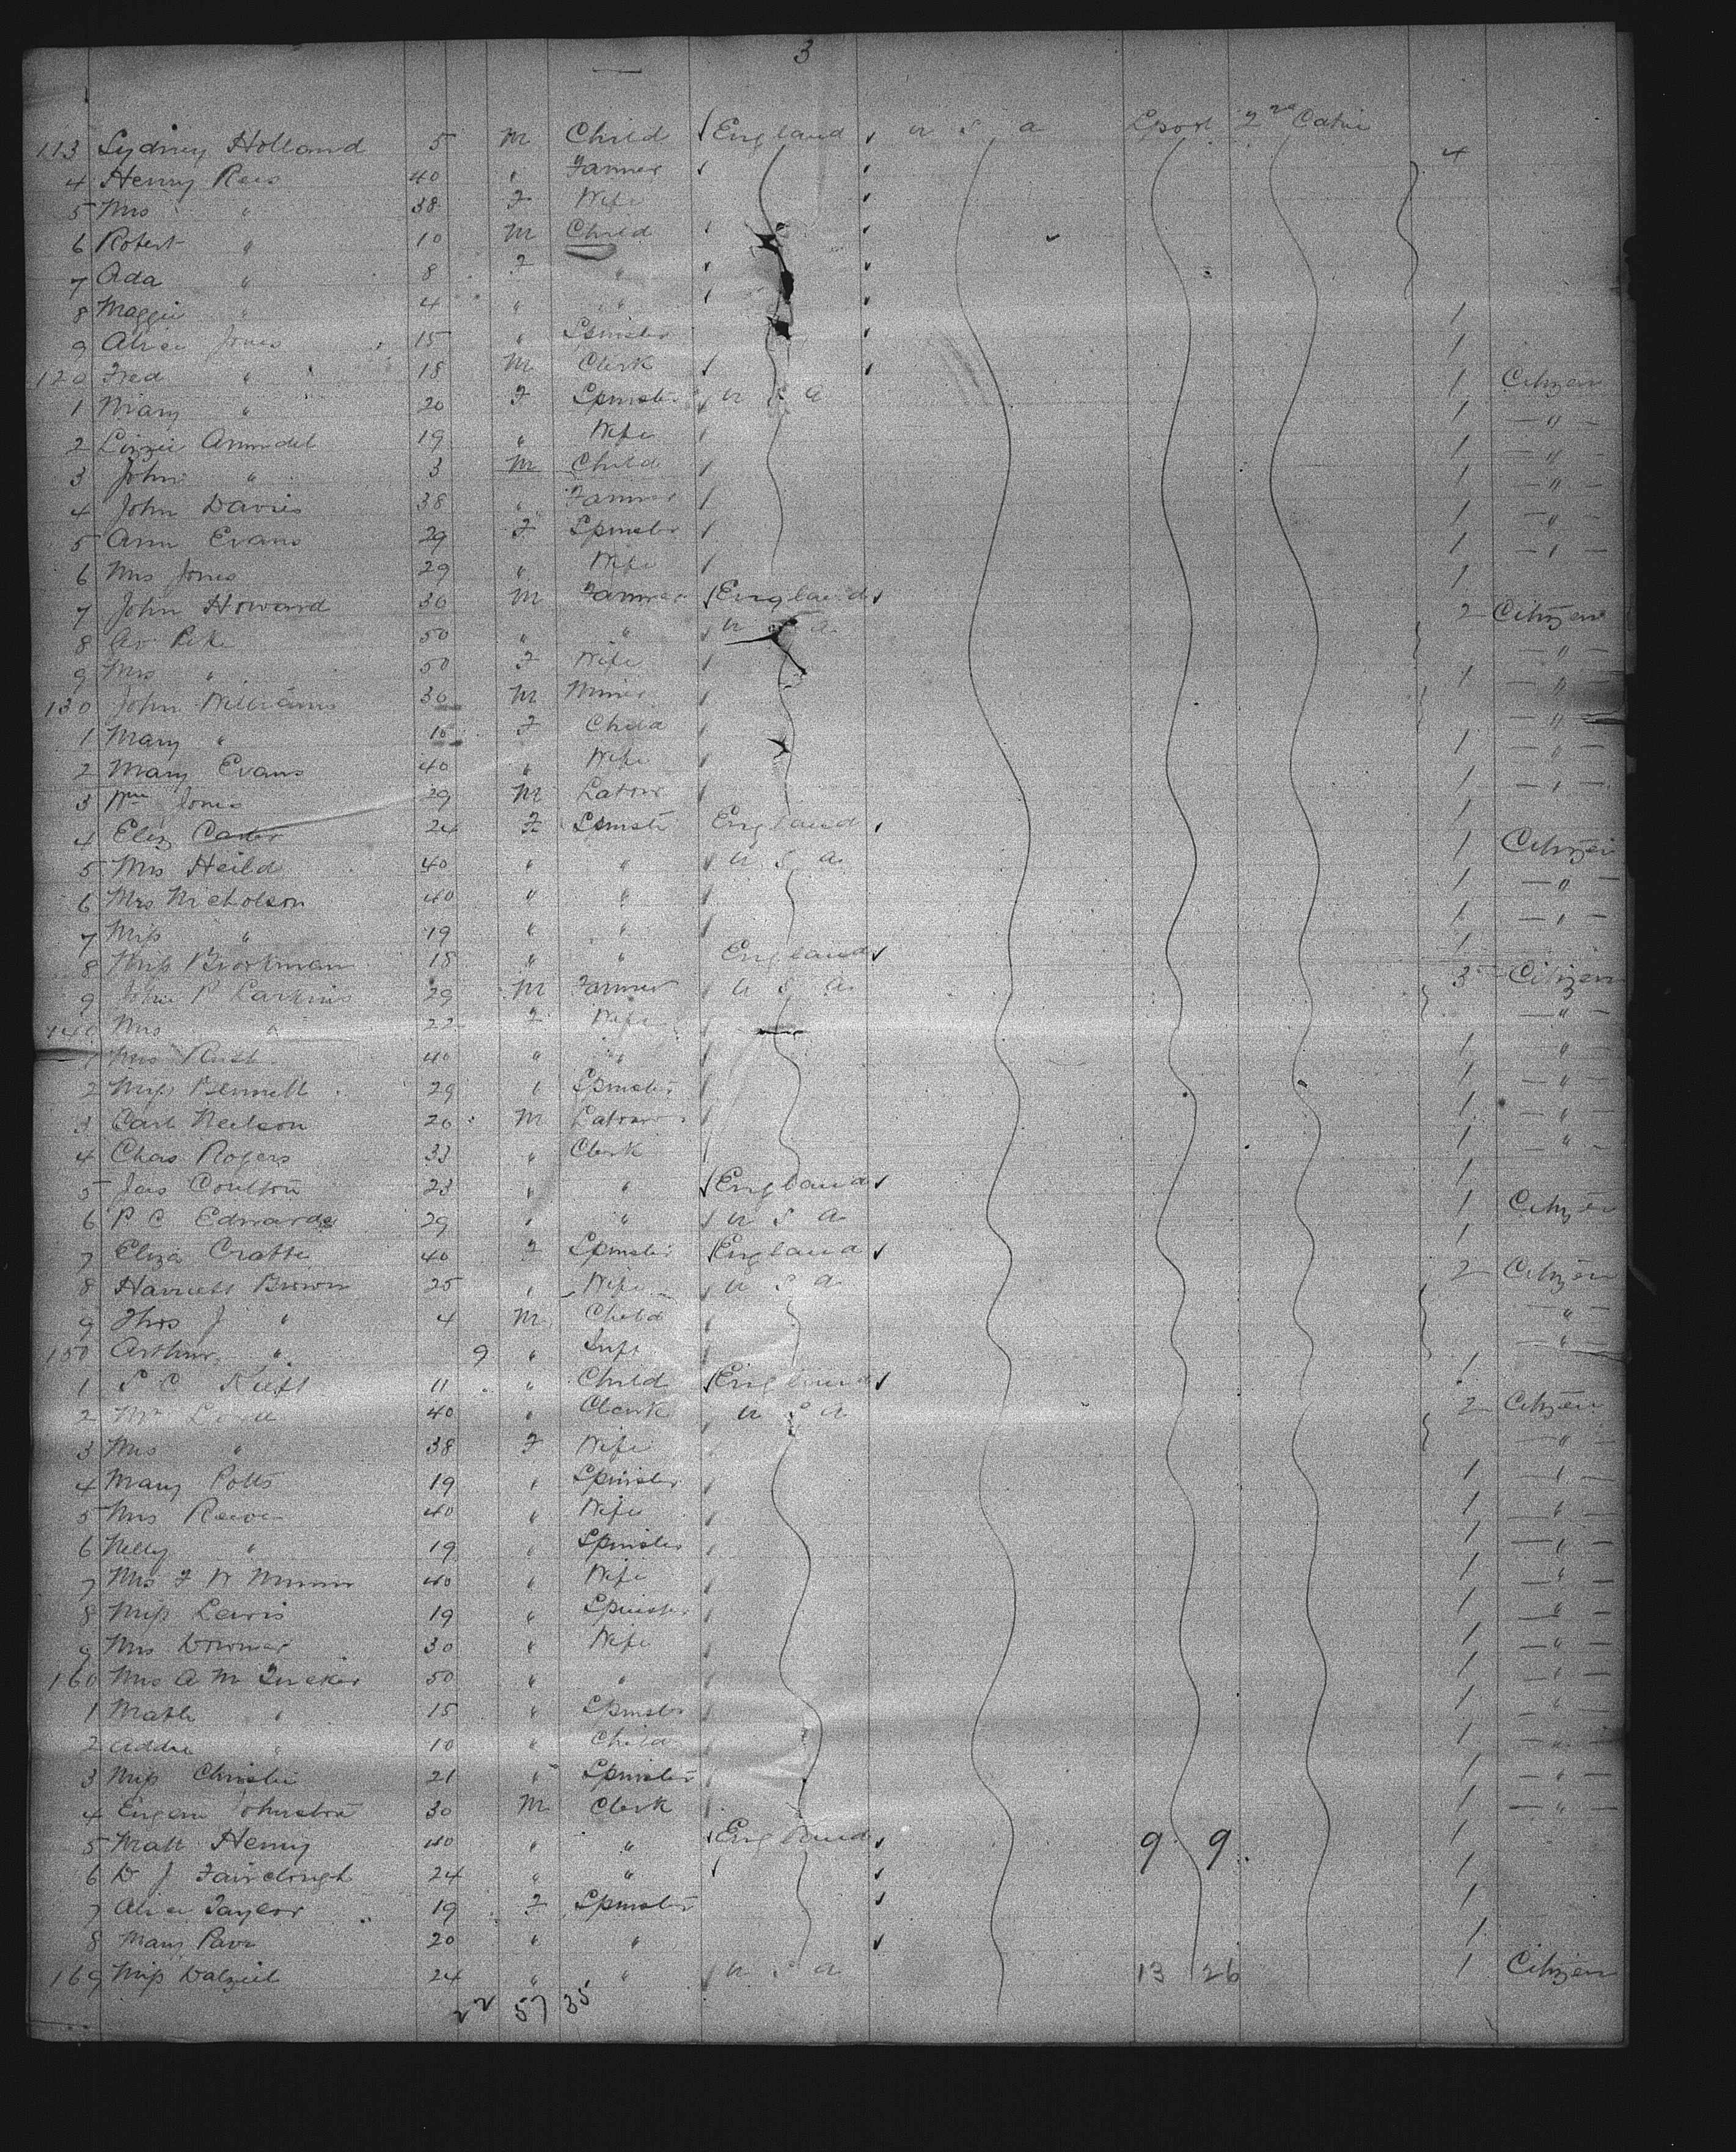 3
113 Sydney Holland 5 M Child England U S A Lpool 2nd Cabin
4 Henry Rees 40 " Farmer 4
5 Mrs " 38 F Wife
6 Robert " 10 M Child
7 Ada " 8 F "
8 Maggie " 4 " "
9 Alice Jones 15 " Spinster 1
120 Fred " 18 M Clerk 1
1 Mary " 20 F Spinster U S A 1 Citizen
2 Lizzie Arundel 19 " Wife 1 "
3 John " 3 M Child 1 "
4 John Davies 38 " Farmer 1 "
5 Ann Evans 29 F Spinster 1 "
6 Mrs Jones 29 " Wife 1 "
7 John Howard 30 M Farmer England 1
8 Pike 50 " " U S A 2 Citizen
9 Mrs " 50 F Wife "
130 John Williams 36 M Miner 1 "
1 Mary " F Child "
2 Mary Evans 40 " Wife 1 "
3 Wm Jones 29 M Labour 1 "
4 Eliz Carter 24 F Spinster England 1
5 Mrs Heild 40 " " U S A 1 Citizen
6 Mrs Nicholson 40 " " 1 "
7 Miss " 19 " " 1 "
8 Miss Brookman 18 " " England 1
9 John P Larkins 29 M Farmer U S A 3 Citizen
140 Mrs " 22 F Wife "
1 Mrs 40 " " 1 "
2 Miss Bennett 29 " Spinster 1 "
3 Carl Neilson 26 M Labour 1 "
4 Chas Rogers 33 " Clerk 1 "
5 Jas Coulton 23 " " England 1
6 P C Edwards 29 " " U S A 1 Citizen
7 Eliza 40 F Spinster England 1
8 Harriett Brown 25 " Wife U S A 2 Citizen
9 Thos J " 4 M Child "
150 Arthur " 9 " Inft "
1 11 " Child England 1
2 Mr 40 " Clerk U S A 2 Citizen
3 Mrs " 38 F Wife "
4 Mary Potts 19 " Spinster 1 "
5 Mrs 40 " Wife 1 "
6 Nelly " 19 " Spinster 1 "
7 Mrs F W 40 " Wife 1 "
8 Miss Lewis 19 " Spinster 1 "
9 Mrs 30 " Wife 1 "
160 Mrs A M Tucker 50 " " 1 "
1 Mable " 15 " Spinster 1 "
2 Addie " 10 " Child 1 "
3 Miss Christie 21 " Spinster 1 "
4 Eugene Johnston 30 M Clerk 1 "
5 Matt Henry 40 " " England 9 9 1
6 D J Fairclough 24 " " 1
7 Alice Taylor 19 F Spinster 1
8 Mary Parr 20 " " 1
169 Miss Dalziel 24 " " U S A 13 26 1 Citizen
22 57 35